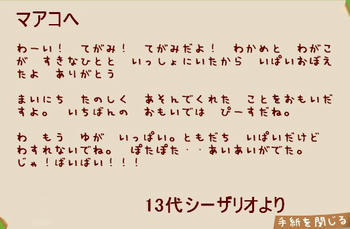 マアコへ
わーい！ てがみ！ てがみだよ！ わかめと わがこ
が すきなひとと いっしょにいたから いぱいおぼえ
たよ ありがとう
まいにち たのしく あそんでくれた ことをおもいだ
すよ。いちばんの おもいでは ぴーすだね。
わ もう ゆが いっぱい。ともだち いぱいだけど
わすれないでね。 ぽたぽた・・あいあいがでた。
じゃ！ばいばい！！！
13代シーザリオより
手紙を閉じる